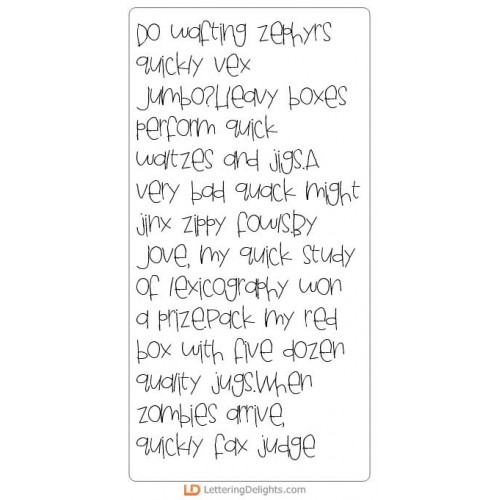 Do wafting zephyrs
quickly vex
Jumbo?Heavy boxes
perform quick
waltzes and jigs.A
very bad quack might
jinx zippy fowls.By
Jove, my quick study
of lexicography won
a prize.Pack my red
box with five dozen
quality jugs.When
zombies arrive,
quickly fax judge
LD LetteringDelights.com